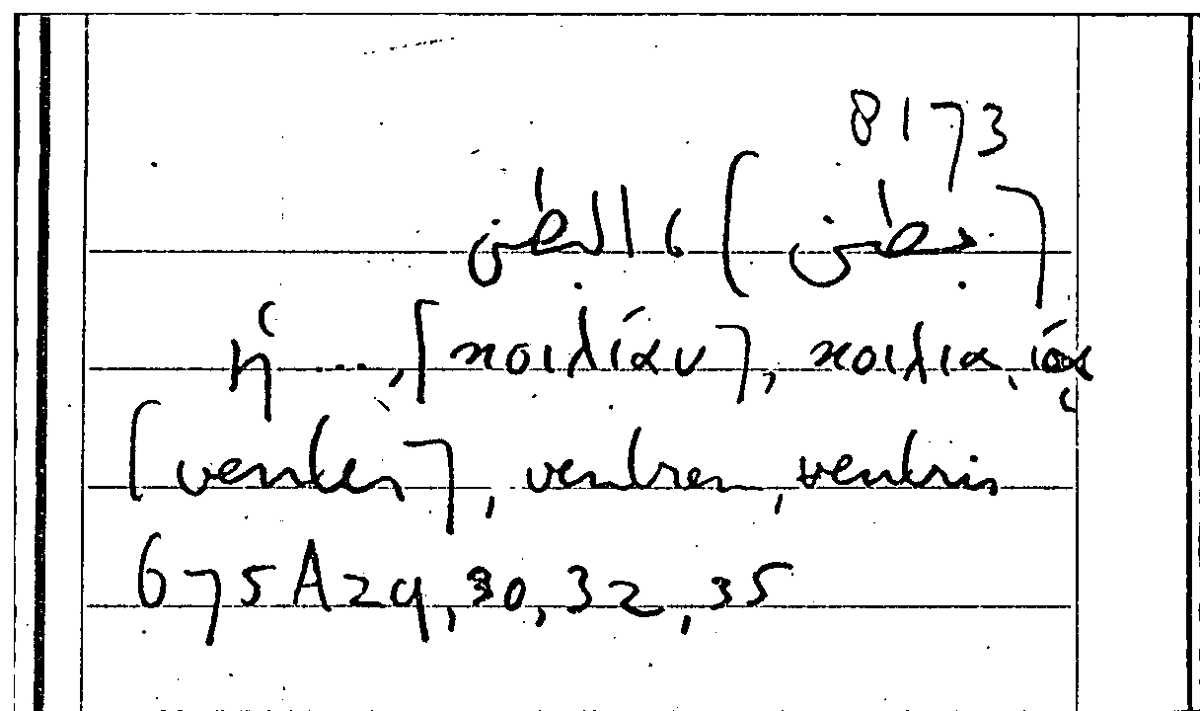 8173
[بطن] ، البطن
ἡ ...., [κοιλίαν], κοιλια, ίας
[venter], ventrem, ventris
675A29,30,32,35